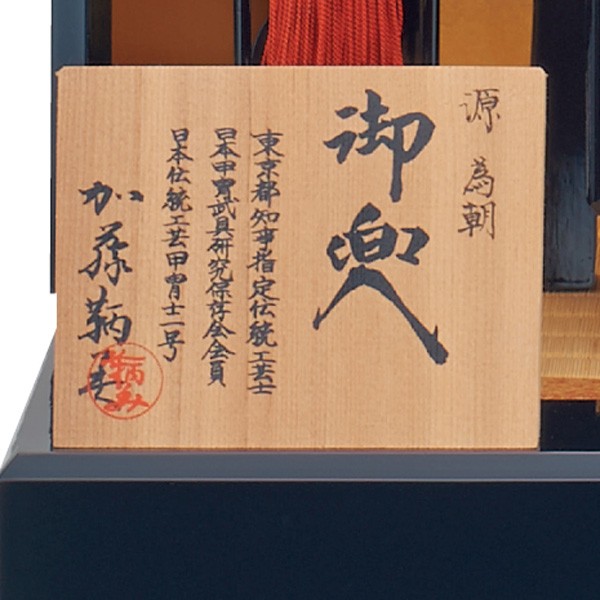 源 為朝
御兜
東京都知事指定伝統工芸士
日本甲冑武具研究保存会会員
日本伝統工芸甲冑士一号
加藤鞆美